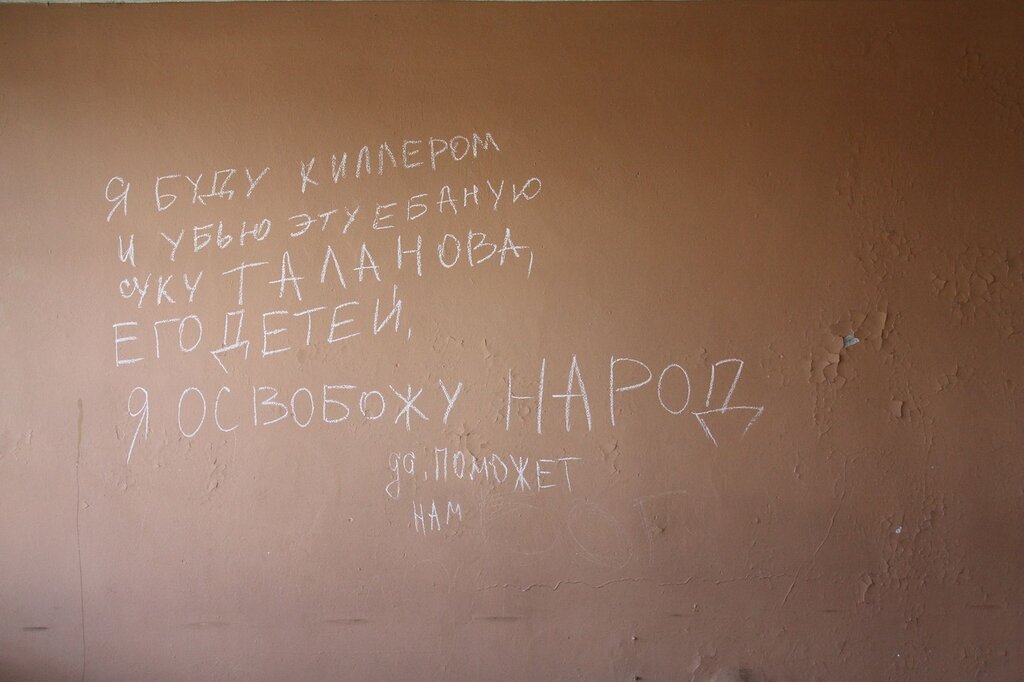 Я БУДУ КИЛЛЕРОМ
И УБЬЮ ЭТУ ЕБАНУЮ
СУКУ ТАЛАНОВА,
ЕГО ДЕТЕЙ,
Я ОСВОБОЖУ НАРОД
да, ПОМОЖЕТ
НАМ БОГ